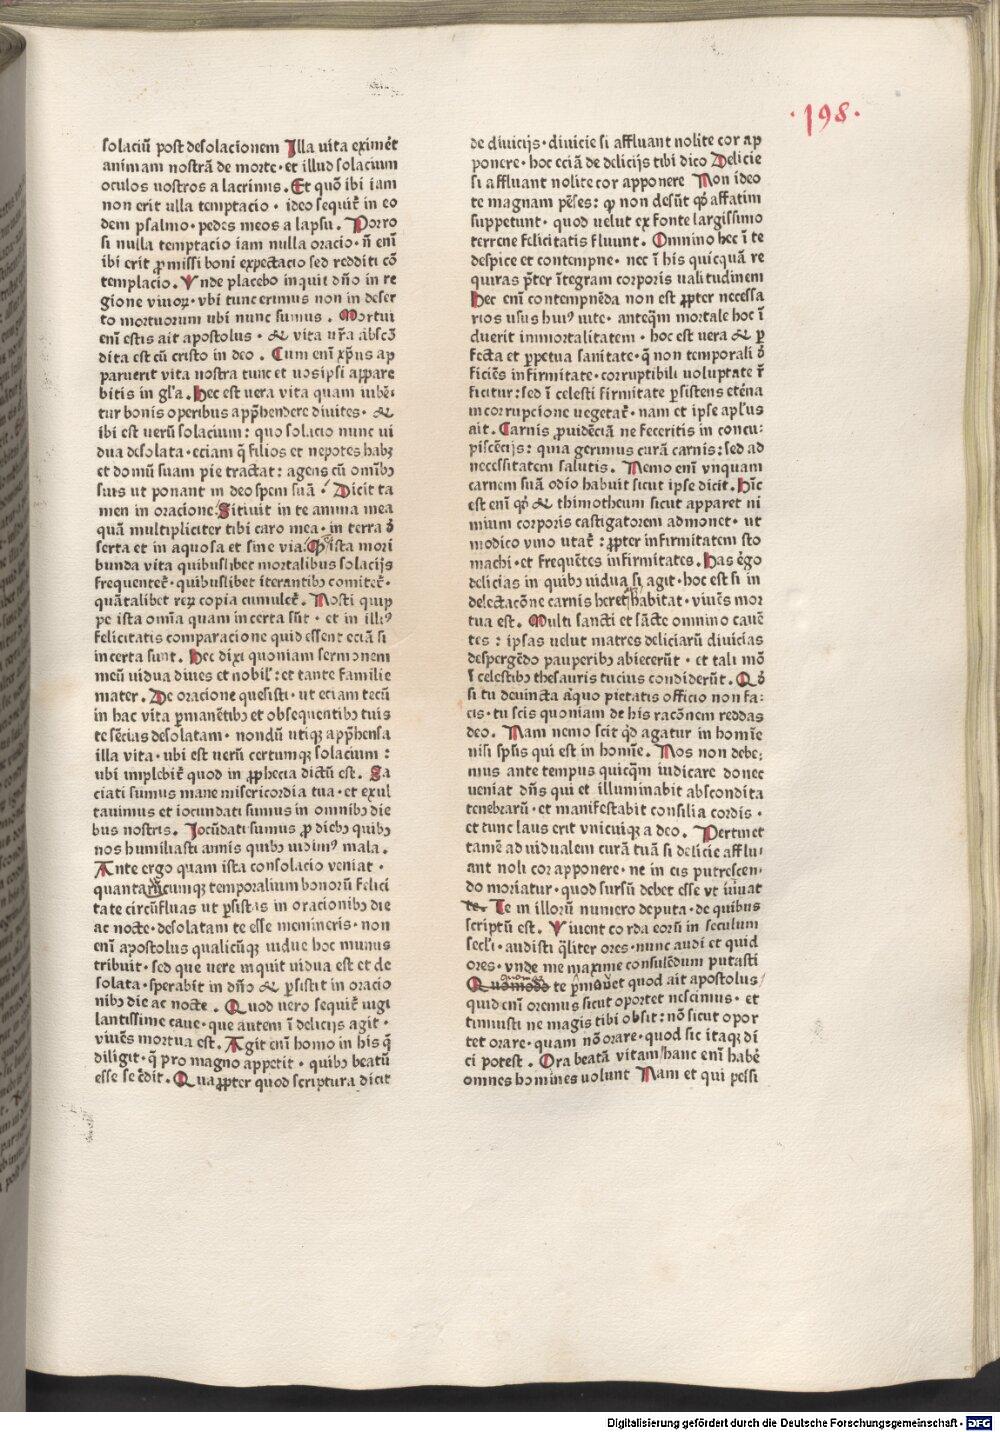 ·198·
solaciū post desolacionem Illa vita eximet̄
animam nostrā de morte · et illud solacium
oculos vostros a lacrimis. Et quō ibi iam
non erit ulla temptacio · ideo sequit᷑ in eo
dem psalmo · pedes meos a lapsu. Porro
si nulla temptacio iam nulla oracio · n̄ eni᷑
ibi erit ꝓmissi boni expectacio sed redditi cō
templacio. Vnde placebo inquit dn̄o in re
gione viuoꝝ · vbi tunc erimus non in deser
to mortuorum ubi nunc sumus. Mortui
eni᷑ estis ait apostolus · & vita ur̄a abscō
dita est cū cristo in deo. Cum eni᷑ xp̄us ap
paruerit vita nostra tunc et vos ipsi appare
bitis in gl'a. Hec est vera vita quam iubē:
tur bonis operibus app̄hendere diuites · &
ibi est uerū solacium: quo solacio nunc ui
dua desolata · eciam q̄ filios et nepotes habꝫ
et domū suam pie tractat: agens cū om̄ibꝫ
suis ut ponant in deo spem suā · Dicit ta
men in oracione Sitiuit in te anima mea
quā multipliciter tibi caro mea · in terra d᷑
serta et in aquosa et sine via. Qͥ ista mori
bunda vita quibuslibet mortalibus solacijs
frequentet᷑ · quibuslibet iterantibꝫ comitet᷑ ·
quātalibet reꝝ copia cumulet᷑. Nosti quip
pe ista om̄ia quam incerta sūt · et in illiꝰ
felicitatis comparacione quid essent eciā si
incerta sunt. Hec dixi quoniam sermonem
meū uidua diues et nobil': et tante familie
mater. De oracione quesisti · ut eciam tecū
in hac vita p̱manētibꝫ et obsequentibꝫ tuis
te sēcias desolatam · nondū utiqꝫ app̄hensa
illa vita · ubi est uerū certumqꝫ solacium:
ubi implebit᷑ quod in ꝓphecia dictū est. Sa
ciati sumus mane misericordia tua · et exul
tauimus et iocundati sumus in omnibꝫ die
bus nostris. Jocūdati sumus ꝓ diebꝫ quibꝫ
nos humiliasti annis quibꝫ uidimꝰ mala.
Ante ergo quam ista consolacio veniat ·
quantaꝝcumqꝫ temporalium bonorū felici
tate circūfluas ut p̱sistas in oracionibꝫ die
ac nocte · desolatam te esse memineris · non
eni᷑ apostolus qualicūqꝫ uidue hoc munus
tribuit · sed que vere inquit uidua est et de
solata · sperabit in dn̄o & p̱sistit in oracio
nibꝫ die ac nocte. Quod vero sequit᷑ uigi
lantissime caue · que autem ī delicijs agit ·
viuēs mortua est. Agit eni᷑ homo in his q̄
diligit · q̄ pro magno appetit · quibꝫ beatū
esse se c᷑dit. Quaꝓpter quod scriptura dicit
de diuicijs · diuicie si affluant nolite cor ap
ponere · hoc eciā de delicijs tibi dico Delicie
si affluant nolite cor apponere Non ideo
te magnam pēses: qꝫ non desūt qꝫ affatim
suppetunt · quod uelut ex fonte largissimo
terrene felicitatis fluunt. Omnino hec ī te
despice et contempne · nec ī his quicquā re
quiras p̄ter īntegram corporis ualitudinem
Hec eni᷑ contempnēda non est ꝓpter necessa
rios usus huiꝰ uite · anteqm̄ mortale hoc ī
duerit inmortalitatem · hoc est uera & p̱
fecta et p̱petua sanitate · q̄ non temporali d᷑
ficiēs infirmitate · corruptibili voluptate r᷑
ficitur: sed ī celesti firmitate p̱sistens et᷑na
incorrupcione uegetat᷑ · nam et ipse apl'us
ait. Carnis ꝓuidēciā ne feceritis in concu:
piscēcijs: quia gerimus curā carnis: sed ad
necessitatem salutis. Nemo eni᷑ vnquam
carnem suā odio habuit sicut ipse dicit. Hīc
est eni᷑ qꝫ & thimotheum sicut apparet ni
mium corporis castigatorem admonet · ut
modico vino utat᷑: ꝓpter infirmitatem sto
machi · et frequētes infirmitates. Has ergo
delicias in quibꝫ uidua si agit · hoc est si in
delectacōne carnis heret habitat · viuēs mor
tua est. Multi sancti et sācte omnino cauē
tes: ipsas uelut matres deliciarū diuicias
despergēdo pauperibꝫ abiecerūt · et tali mō
ī celestibꝫ thesauris tucius condiderūt. Qd᷑
si tu deuincta aliquo pietatis officio non fa:
cis · tu scis quoniam de his racōnem reddas
deo. Nam nemo scit qd̄ agatur in homīe
nisi sp̄us qui est in homīe. Nos non debe:
mus ante tempus quicqm̄ iudicare donec
ueniat dn̄s qui et illuminabit abscondita
tenebrarū · et manifestabit consilia cordis ·
et tunc laus erit vnicuiqꝫ a deo. Pertinet
tamē ad uidualem curā tuā si delicie afflu:
ant noli cor apponere · ne in eis putrescen:
do moriatur · quod sursū debet esse vt uiuat
te. Te in illorū numero deputa · de quibus
scriptū est. Viuent corda eorū in seculum
secl'i · audisti q̄liter ores · nunc audi et quid
ores · vnde me maxime consulēdum putasti
Quomodo te p̄mouet quod ait apostolus/
quid eni᷑ oremus sicut oportet nescimus · et
timuisti ne magis tibi obsit: nō sicut opor
tet orare · quam nō orare · quod sic itaqꝫ di
ci potest. Ora beatā vitam/hanc eni᷑ habe᷑
omnes homines uolunt Nam et qui pessi
Digitalisierung gefördert durch die Deutsche Forschungsgemeinschaft - DFG